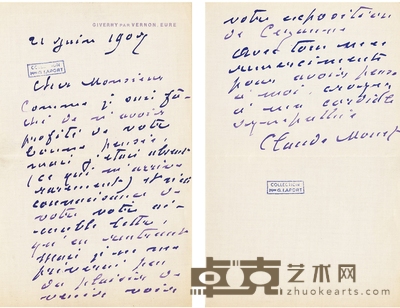 GIVERNY PAR VERNON, EURE
21 juin 1907
COLLECTION
Pre G. LAPORT
Cher Monsieur
Comme je suis fâ-
ché de n'avoir
profité de votre
bonne pensée,
mais j'étais absent
(ce qui m'arrive
rarement) et n'ai
connaissance de
votre aimable lettre,
qu'en rentrant
mais je ne me
priverai pas
du plaisir de
venir voir
votre exposition
de Cezanne
avec tous mes
remerciements
pour avoir pensé
à moi, croyez
à ma cordiale
sympathie
Claude Monet
COLLECTION
Pre G. LAPORT
卓克艺术网
zhuokearts.com